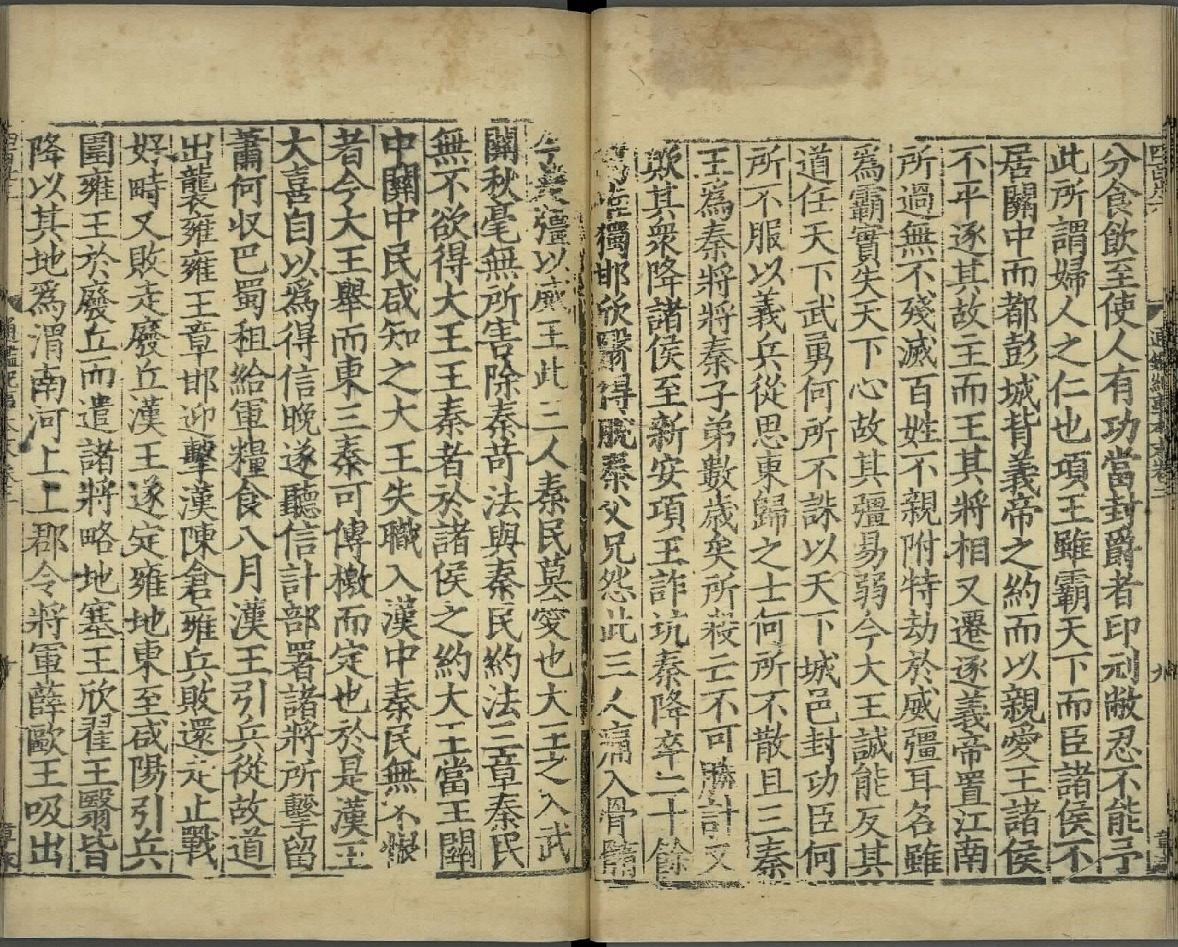 分食飲至使人有功當封爵者印刓敝忍不能予
此所謂婦人之仁也項王雖霸天下而臣諸侯不
居關中而都彭城背義帝之約而以親愛王諸侯
不平逐其故主而王其將相又遷逐義帝置江南
所過無不殘滅百姓不親附特劫於威彊耳名雖
爲霸實失天下心故其彊易弱今大王誠能反其
道任天下武勇何所不誅以天下城邑封功臣何
所不服以義兵從思東歸之士何所不散且三秦
王爲秦將將秦子弟數歲矣所殺亡不可勝計又
欺其衆降諸侯至新安項王詐坑秦降卒二十餘
獨邯欣翳得脫秦父兄怨此三人痛入骨髓
今楚彊以威王此三人秦民莫愛也大王之入武
關秋毫無所害除秦苛法與秦民約法三章秦民
無不欲得大王王秦者於諸侯之約大王當王關
中關中民咸知之大王失職入漢中秦民無不恨
者今大王舉而東三秦可傳檄而定也於是漢王
大喜自以爲得信晚遂聽信計部署諸將所擊留
蕭何收巴蜀租給軍糧食八月漢王引兵從故道
出襲雍雍王章邯迎擊漢陳倉雍兵敗還走止戰
好畤又敗走廢丘漢王遂定雍地東至咸陽引兵
圍雍王於廢丘而遣諸將略地塞王欣翟王翳皆
降以其地爲渭南河上上郡令將軍薛歐王吸出